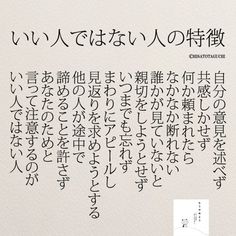 いい人ではない人の特徴
©HISATOTAGUCHI
自分の意見を述べず
共感しかせず
何か頼まれたら
なかなか断れない
誰かが見ていないと
親切をしようとせず
いつまでも忘れず
まわりにアピールし
見返りを求めようとする
他の人が途中で
諦めることを許さず
あなたのためと
言って注意するのが
いい人ではない人